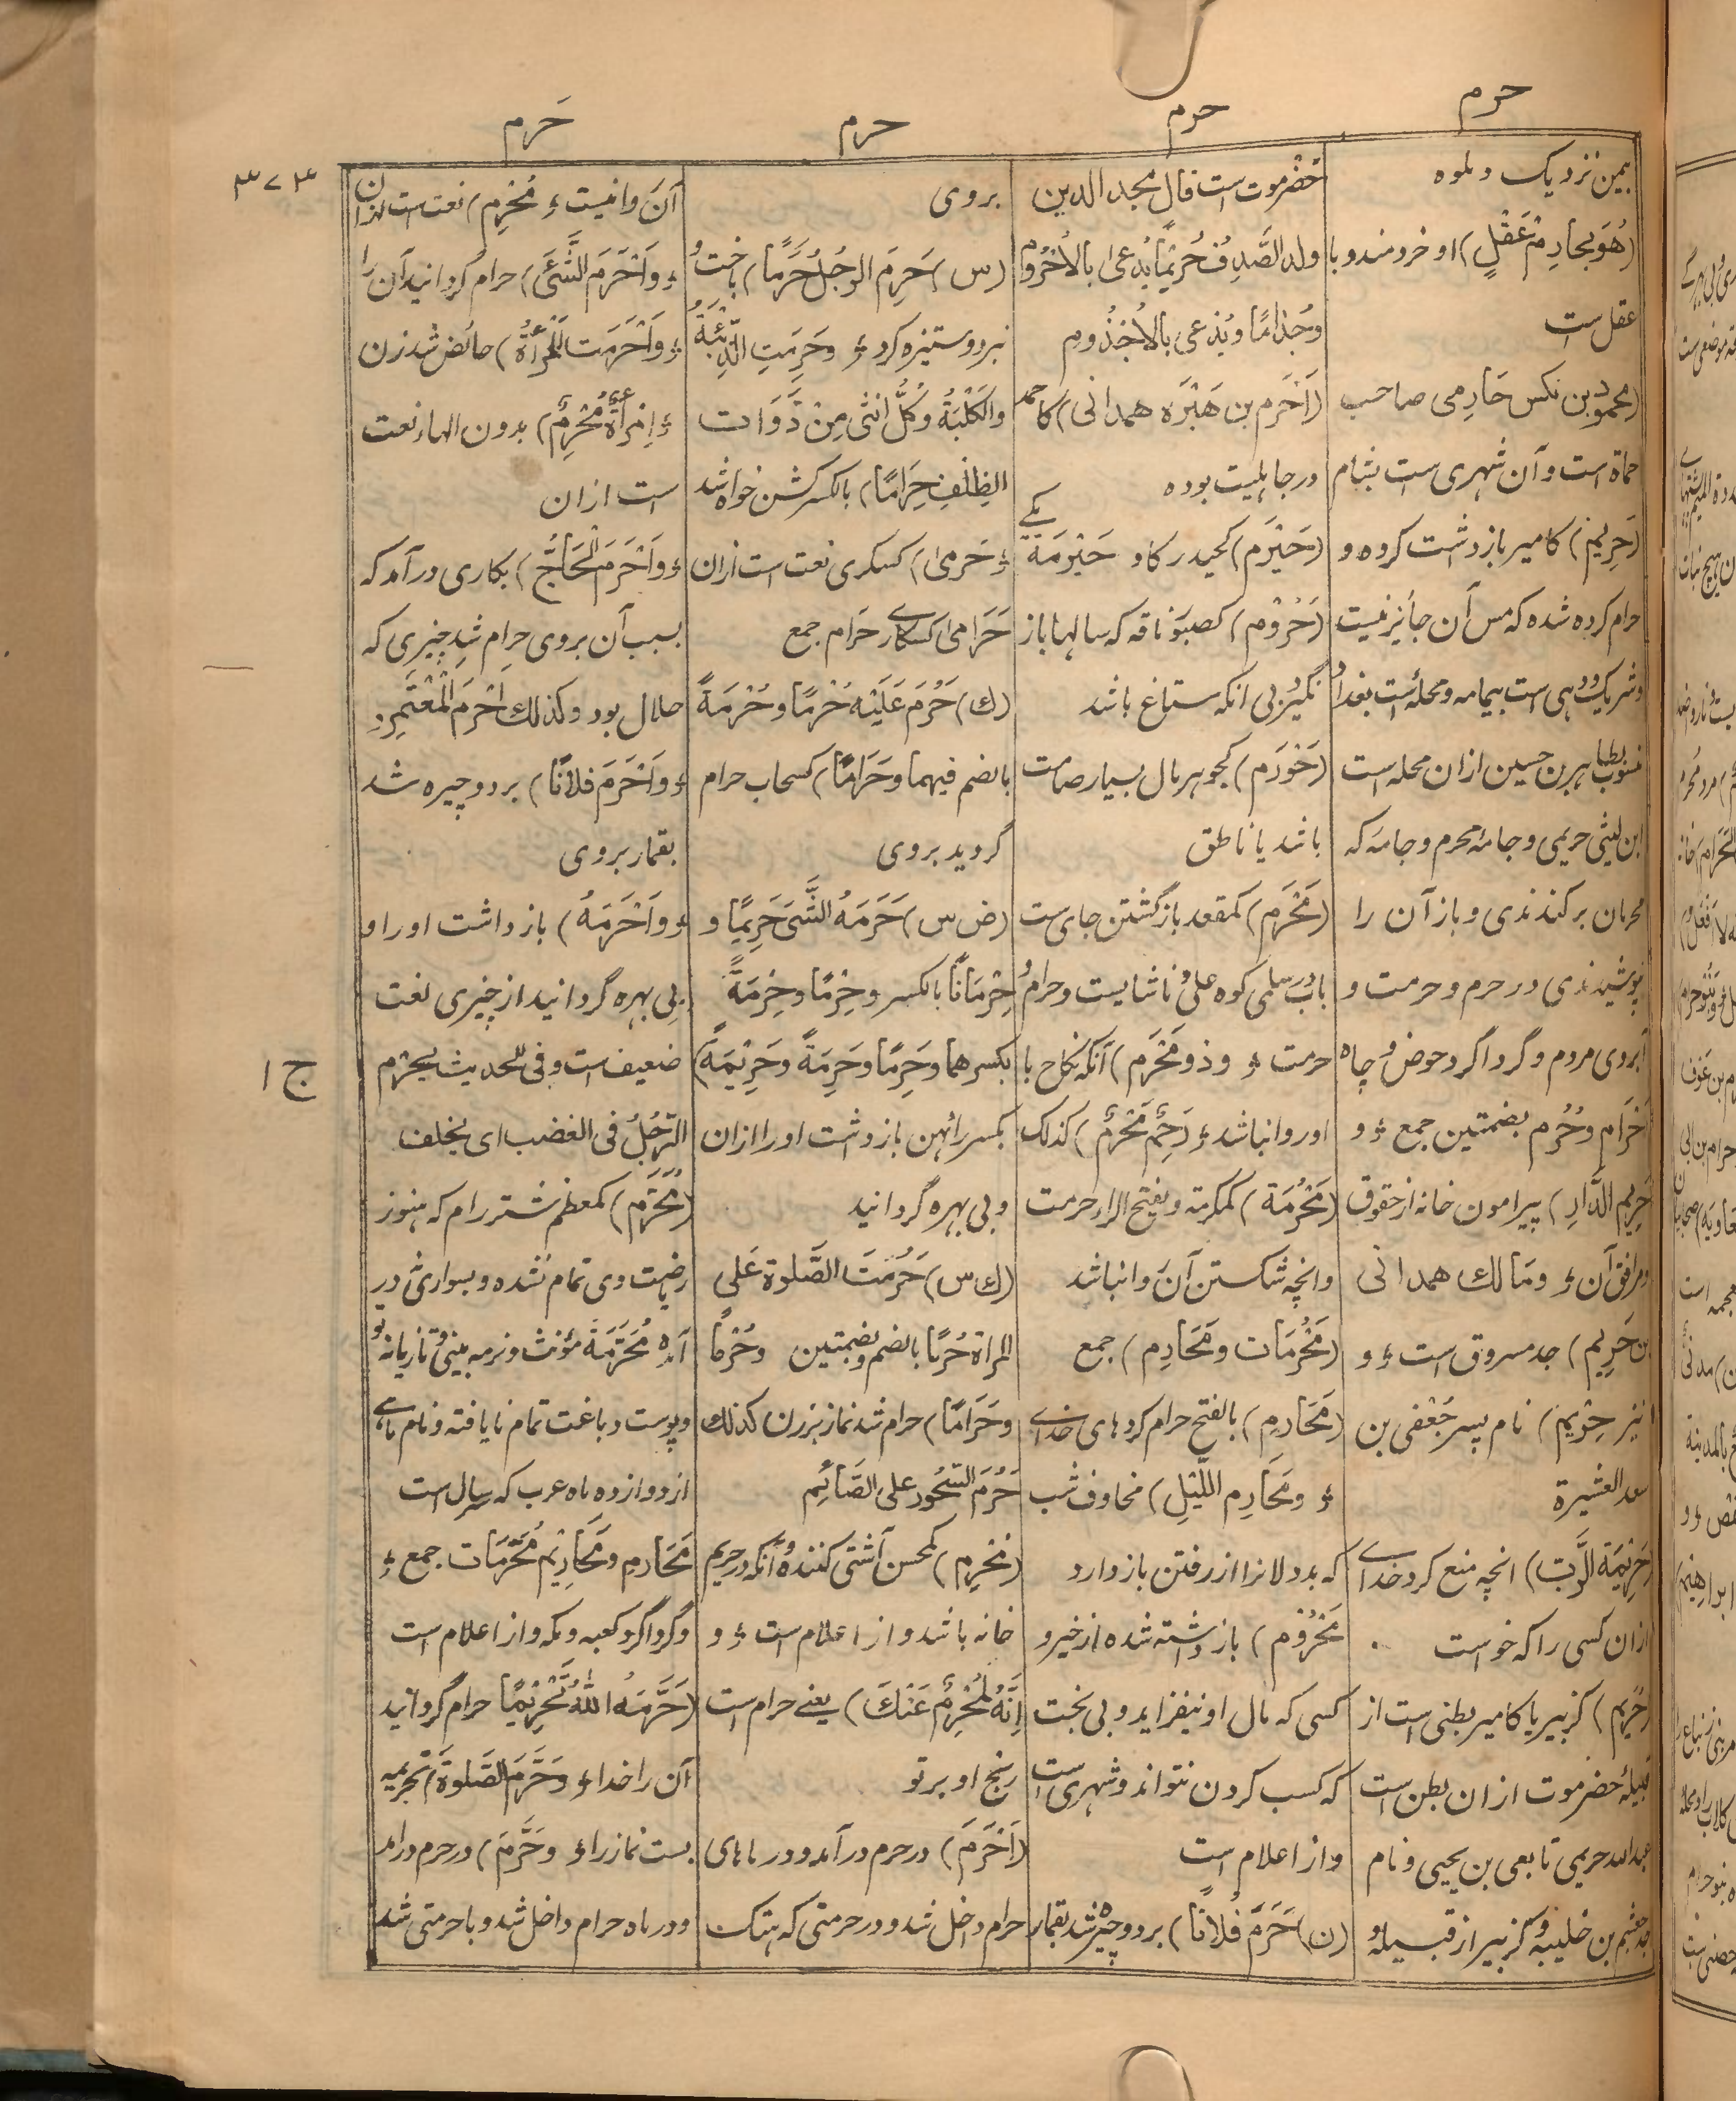 حرم
حرم
حرم
حرم
۳۷۴
یمین نزدیک و ملوه
(هُوَ بِحَارِمِ عَقْلٍ) او خردمند و با
عقل ست
(محمود بن نکس حَارِمی صاحب
حماة است و آن شهری ست بشام
(حَرِیم) کامیر بازداشت کرده و
حرام کرده شده که مس آن جائز نیست
و شریک و دهی ست بیمامه و محله است ببغداد
منسوب بطاهر بن حسین ازان محله است
ابن لیثی حریمی و جامۀ محرم و جامه که
محرمان برکندندی و باز آن را
نپوشیدندی در حرم و حرمت و
آبروی مردم و گرداگرد حوض و چاه
اَحْرَام و حُرُم بضمتین جمع ؤ و
حَرِیم الدَّارِ) پیرامون خانه از حقوق
و مرافق آن ؤ و مَالك همدانی
بن حَرِیم) جد مسروق است ؤ و
نیز حِرْیَم) نام پسر جُعْفی بن
سعد العشیرة
(حَرِیْمَة الرَّبّ) انچه منع کرد خدای
ازان کسی را که خواست
(حُرَیم) کزبیر یا کامیر بطنی است از
قبیلۀ حضرموت ازان بطن است
عبدالله حریمی تابعی بن یحیی و نام
جد جعشم بن خلیبه و کزبیر از قبیله
حَضْرموت است قال مجد الدین
ولد الصَّدِف حُرَیْمًا یُدعی بالاُحْرُوم
وجُذامًا ویُدعی بالاُجْذُوم
(اَحْرَم بن هَبْرَه همدانی) کاحمد
در جاهلیت بوده
(حَیْرَم) کحیدر گاو حَیْرَمَة یکے
(حَرُوْم) کصبور ناقه که سالها باز
نگیرد بی انکه ستاغ باشد
(حَوْرَم) کجوهر مال بسیار صامت
باشد یا ناطق
(مَحْرَم) کمقعد بازگشتن جای ست
باب سلمی کوه علی و ناشایست و حرام و
حرمت ؤ و ذو مَحْرَم) آنکه نکاح با
او روا نباشد ؤ (رَحِمٌ مَحْرَمٌ) کذلک
(مَحْرُمَة) کمکرمة و بفتح الراء حرمت
و انچه شکستن آن روا نباشد
(مَحْرُمَات و مَحَارِم) جمع
(مَحَارِم) بالفتح حرام کرد های خدای
ؤ و مَحَارِم اللَّیْلِ) مخاوف شب
که بد دلانرا از رفتن باز دارد
مَحْرُوْم) بازداشته شده از خیر و
کسی که مال او نیفزاید و بی بخت
که کسب کردن نتواند و شهری ست
و از اعلام است
(ن) حَرَمَ فُلانًا) برد و چیره شد بقمار
بروی
(س) حَرِمَ الرجُلُ حَرَمًا) باخت و
نبرد و ستیزه کرد ؤ وحَرِمَتِ الذِّئْبَةُ
والکَلْبَةُ وکُلُّ انثی مِنْ ذَوَات
الظِّلْفِ حِرَامًا) بالکسر گشن خواه شد
ؤ حَرمیٰ) کسکری نعت است ازان
حَرَامیٰ کسکارے حَرَام جمع
(ك) حَرُمَ عَلَیْهِ حُرْمًا وحُرْمَةً
بالضم فیهما وحَرَامًا) کسحاب حرام
گردید بروی
(ض س) حَرَمَهُ الشَّیَ حَرِیمًا و
حِرْمَانًا بالکسر وحِرْمًا وحِرْمَةً
بکسرهما وحَرِمًا وحَرِمَةً وحَرِیْمَةً)
بکسر رائهن بازداشت او را ازان
و بی بهره گردانید
(ك س) حَرُمَت الصَّلوة عَلی
المراة حُرُمًا بالضم وبضمتین وحُرْمًا
وحَرَامًا) حرام شد نماز بر زن کذلك
حَرُمَ السَّحُور علی الصَّائِم
(مُحْرِم) کمحسن آشتی کننده و انکه در حریم
خانه باشد و از اعلام است ؤ و
اِنَّهُ لَمُحْرِمٌ عَنْكَ) یعنے حرام است
رنج او بر تو
(اَحْرَمَ) در حرم در آمد و در ماهای
حرام داخل شد و در حرمتی که هتک
آن روا نیست ؤ مُحْرِم) نعت است ازان
ؤ وَاَحْرَمَ الشَّیَٔ) حرام گردانید آن را
ؤ وَاَحْرَمَت المَرْأَةُ) حائض شد زن
ؤ اِمْرَأَةٌ مُحْرِمٌ) بدون الهاء نعت
است ازان
ؤ وَاَحْرَمَ الحَاجُّ) بکاری در آمد که
بسبب آن بروی حرام شد چیزی که
حلال بود وکذلك اَحْرَمَ الْمُعْتَمِرُ
ؤ وَاَحْرَمَ فلانًا) برد و چیره شد
بقمار بروی
ؤ وَاَحْرَمَهُ) بازداشت او را و
بی بهره گردانید از چیزی لغت
ضعیف است و فی الحدیث یحرم
الرَّجُلُ فی الغضب ای یحلف
(مُحَرَّم) کمعظم شتر رام که هنوز
ریاضت وی تمام نشده و بسواری در
آمده مُحَرَّمَة مؤنث و نرمه بینی و تازیانه نو
و پوست دباغت تمام نایافته و نام ماهے
از دوازده ماه عرب که سر سال است
مَحَارِم و مَحَارِیْم مُحَرَّمَات جمع ؤ
و گرداگرد کعبه و مکه و از اعلام است
(حَرَّمَهُ اللّٰهُ تَحْرِیْمًا حرام گردانید
آن را خدا ؤ وحَرَّمَ الصَّلوةَ) تحریمه
بست نماز را ؤ وحَرَّمَ) در حرم درآمد
و در ماه حرام داخل شد و با حرمتی شد
ج ۱